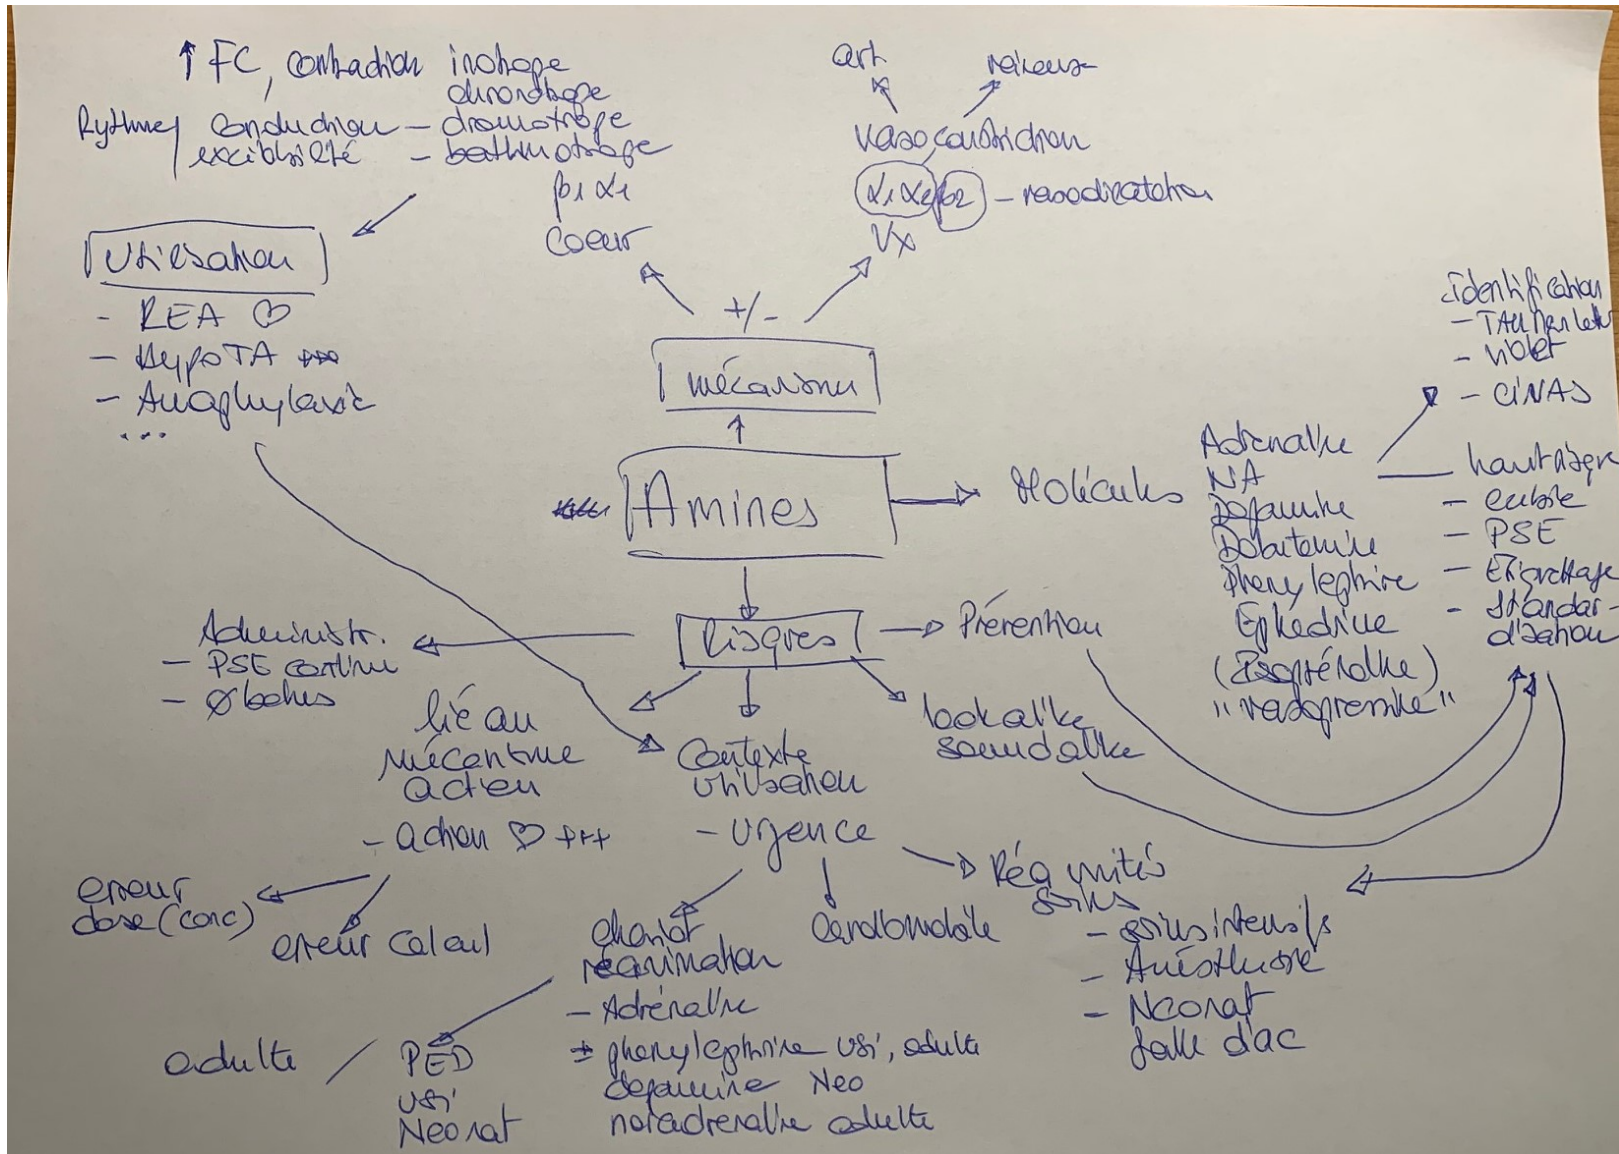 ↑ FC, contraction inotrope
chronotrope
Rythme/ conduction - dromotrope
excitabilité - bathmotrope
β1 α1
Coeur
art veineuse
vasoconstriction
α1 α2 β2 - vasodilatation
Vx
Utilisation
- REA ♡
- HypoTA +++
- Anaphylaxie
...
+/-
mécanisme
Amines
Molécules
Adrenaline
NA
Dopamine
Dobutamine
Phenylephrine
Ephédrine
(Isoprénaline)
"vasopressine"
identification
- TALLMan letter
- violet
- CIVAS
haut risque
-
- PSE
- Etiquettage
- Standar-
disation
Risques
Prévention
Administr.
- PSE continu
- Ø bolus
lié au
mécanisme
action
- action ♡ +++
erreur
dose (conc)
erreur calcul
Contexte
utilisation
- Urgence
lookalike
soundalike
chariot
réanimation
- Adrénaline
± phenylephrine usi, adulte
dopamine Neo
noradrenaline adulte
adulte / PED
usi
Neonat
Cardiomobile
Réa unités
soins
- soins intensifs
- Anésthésie
- Neonat
salle d'ac